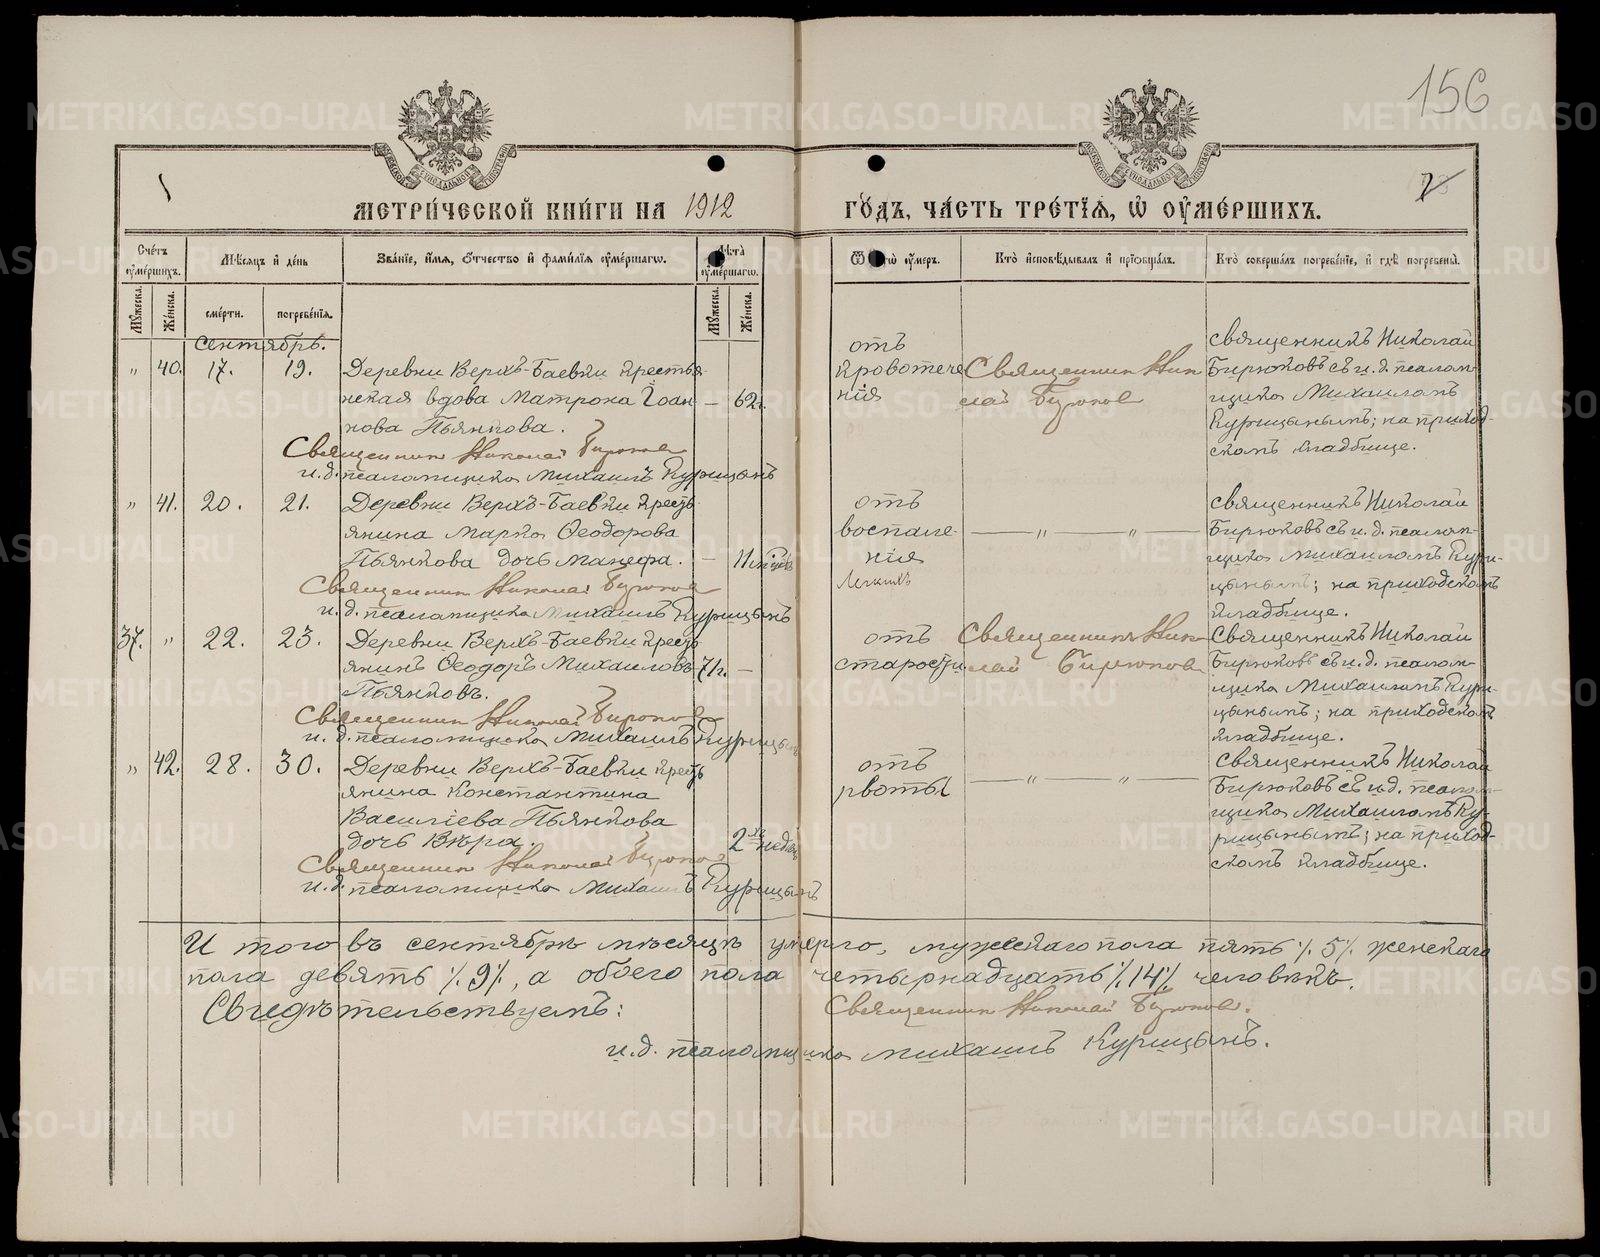 156
МЕТРИ́ЧЕСКОЙ КНИ́ГИ НА 1912
ГО́ДЪ, ЧА́СТЬ ТРЕ́ТІѦ, Ѡ҆ ОУ҆МЕ́РШИХЪ.
Сче́тъ оу҆ме́ршихъ.
Мѣ́сѧцъ и҆ де́нь
Зва́нїе, и҆́мѧ, ѻ҆́тчество и҆ фамн́лїѧ оу҆ме́ршагѡ.
Лѣ́та̀ оу҆ме́ршагѡ.
Ѿ чегѡ̀ оу҆́меръ.
Кто̀ и҆сповѣ́дывалъ и҆ прїѡбща́лъ.
Кто̀ соверша́лъ погребе́нїе, и҆ гдѣ̀ погребены̀.
Му́жеска.
Же́нска.
сме́рти.
погребе́нїѧ.
Му́жеска.
Же́нска.
Сентябрь.
" 40. 17. 19. Деревни Верхъ-Баевки крестья-
нская вдова Матрона Іоан- — 62 г.
нова Пьянкова.
Священник Николай Бирюков
и.д. псаломщика Михаилъ Курицынъ
отъ
кровотече
нія
Священник Нико
лай Бирюков
Священникъ Николай
Бирюковъ съ и.д. псалом-
щика Михаиломъ
Курицынымъ; на приход-
скомъ кладбище.
" 41. 20. 21. Деревни Верхъ-Баевки кресть
янина Марка Ѳеодорова
Пьянкова дочь Манефа. — 11 мѣсяцевъ
Священник Николай Бирюков
и.д. псаломщика Михаилъ Курицынъ
отъ
воспале-
нія
легкихъ
— " — " —
Священникъ Николай
Бирюковъ съ и.д. псалом-
щика Михаиломъ Кури-
цынымъ; на приходскомъ
кладбище.
37. " 22. 23. Деревни Верхъ-Баевки кресть
янинъ Ѳеодоръ Михаиловъ 71 г. —
Пьянковъ.
Священник Николай Бирюков
и.д. псаломщика Михаилъ Курицынъ
отъ
старости
Священникъ Нико
лай Бирюков
Священникъ Николай
Бирюковъ съ и.д. псалом-
щика Михаиломъ Кури-
цынымъ; на приходскомъ
кладбище.
" 42. 28. 30. Деревни Верхъ-Баевки кресть
янина Константина
Василіева Пьянкова
дочь Вѣра. 2хъ недѣль
Священник Николай Бирюков
и.д. псаломщика Михаилъ Курицынъ
отъ
рвоты
— " — " —
Священникъ Николай
Бирюковъ съ и.д. псалом-
щика Михаиломъ Ку-
рицынымъ; на приход-
скомъ кладбище.
И того въ сентябрѣ мѣсяцѣ умерло, мужскаго пола пять ./. 5 ./. женскаго
пола девять ./. 9 ./., а обоего пола четырнадцать ./. 14 ./. человѣкъ.
Свидѣтельствуемъ: Священник Николай Бирюков.
и.д. псаломщика Михаилъ Курицынъ.